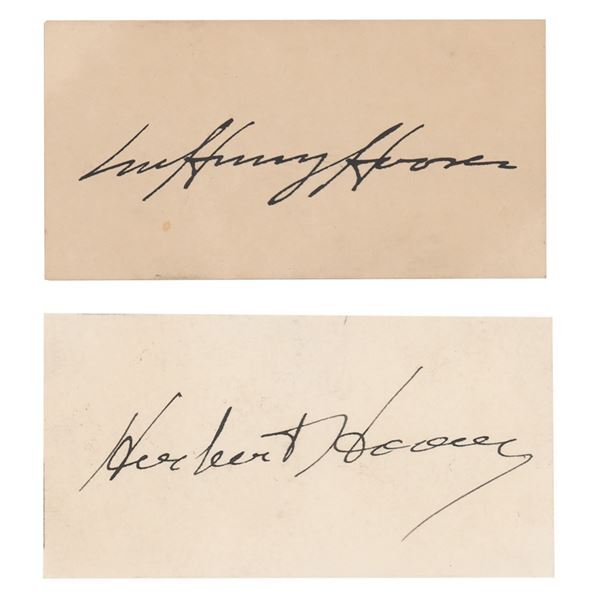 Lou Henry Hoover
Herbert Hoover